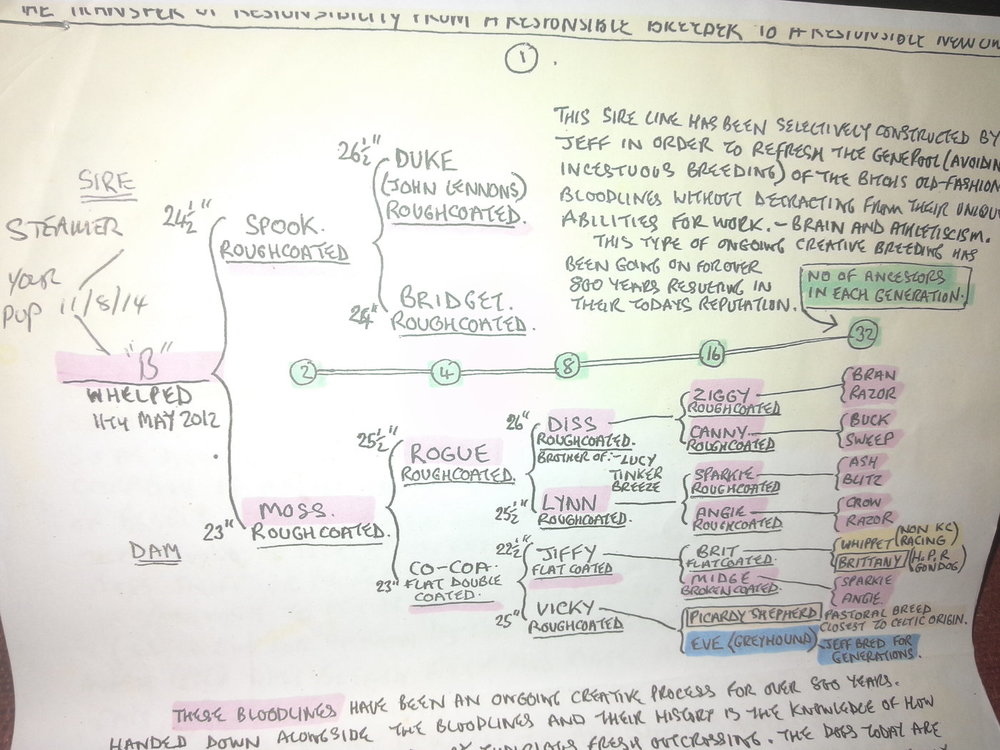 THE TRANSFER OF RESPONSIBILITY FROM A RESPONSIBLE BREEDER TO A RESPONSIBLE NEW
1
THIS SIRE LINE HAS BEEN SELECTIVELY CONSTRUCTED BY
JEFF IN ORDER TO REFRESH THE GENEPOOL (AVOIDIN
INCESTUOUS BREEDING) OF THE BITCHS OLD-FASHION
BLOODLINES WITHOUT DETRACTING FROM THEIR UNIQU
ABILITIES FOR WORK. - BRAIN AND ATHLETISCISM.
THIS TYPE OF ONGOING CREATIVE BREEDING HAS
BEEN GOING ON FOR OVER
800 YEARS RESULTING IN
THEIR TODAYS REPUTATION.
NO OF ANCESTORS
IN EACH GENERATION.
SIRE
STEAMER
YOUR
PUP 11/8/14
"B"
WHELPED
11TH MAY 2012
DAM
24½"
SPOOK.
ROUGHCOATED
26½"
DUKE
(JOHN LENNONS)
ROUGHCOATED.
BRIDGET.
ROUGHCOATED.
2
4
8
16
32
23"
MOSS.
ROUGHCOATED.
25½"
ROGUE
ROUGHCOATED.
23"
CO-COA.
FLAT DOUBLE
COATED.
26"
DISS
ROUGHCOATED.
BROTHER OF:- LUCY
TINKER
BREEZE
25½"
LYNN
ROUGHCOATED.
22½"
JIFFY
FLAT COATED
25"
VICKY
ROUGHCOATED
ZIGGY
ROUGHCOATED
CANNY
ROUGHCOATED
SPARKIE
ROUGHCOATED
ANGIE
ROUGHCOATED
BRIT
FLATCOATED.
MIDGE
BROKENCOATED.
PICARDY SHEPHERD
EVE (GREYHOUND)
BRAN
RAZOR
BUCK
SWEEP
ASH
BLITZ
CROW
RAZOR
WHIPPET (NON KC RACING)
BRITTANY (H.P.R GUNDOG)
SPARKIE
ANGIE.
PASTORAL BREED
CLOSEST TO CELTIC ORIGIN.
JEFF BRED FOR
GENERATIONS.
THESE BLOODLINES HAVE BEEN AN ONGOING CREATIVE PROCESS FOR OVER 800 YEARS.
HANDED DOWN ALONGSIDE THE BLOODLINES AND THEIR HISTORY IS THE KNOWLEDGE OF HOW
FRESH OUTCROSSING. THE DOGS TODAY ARE